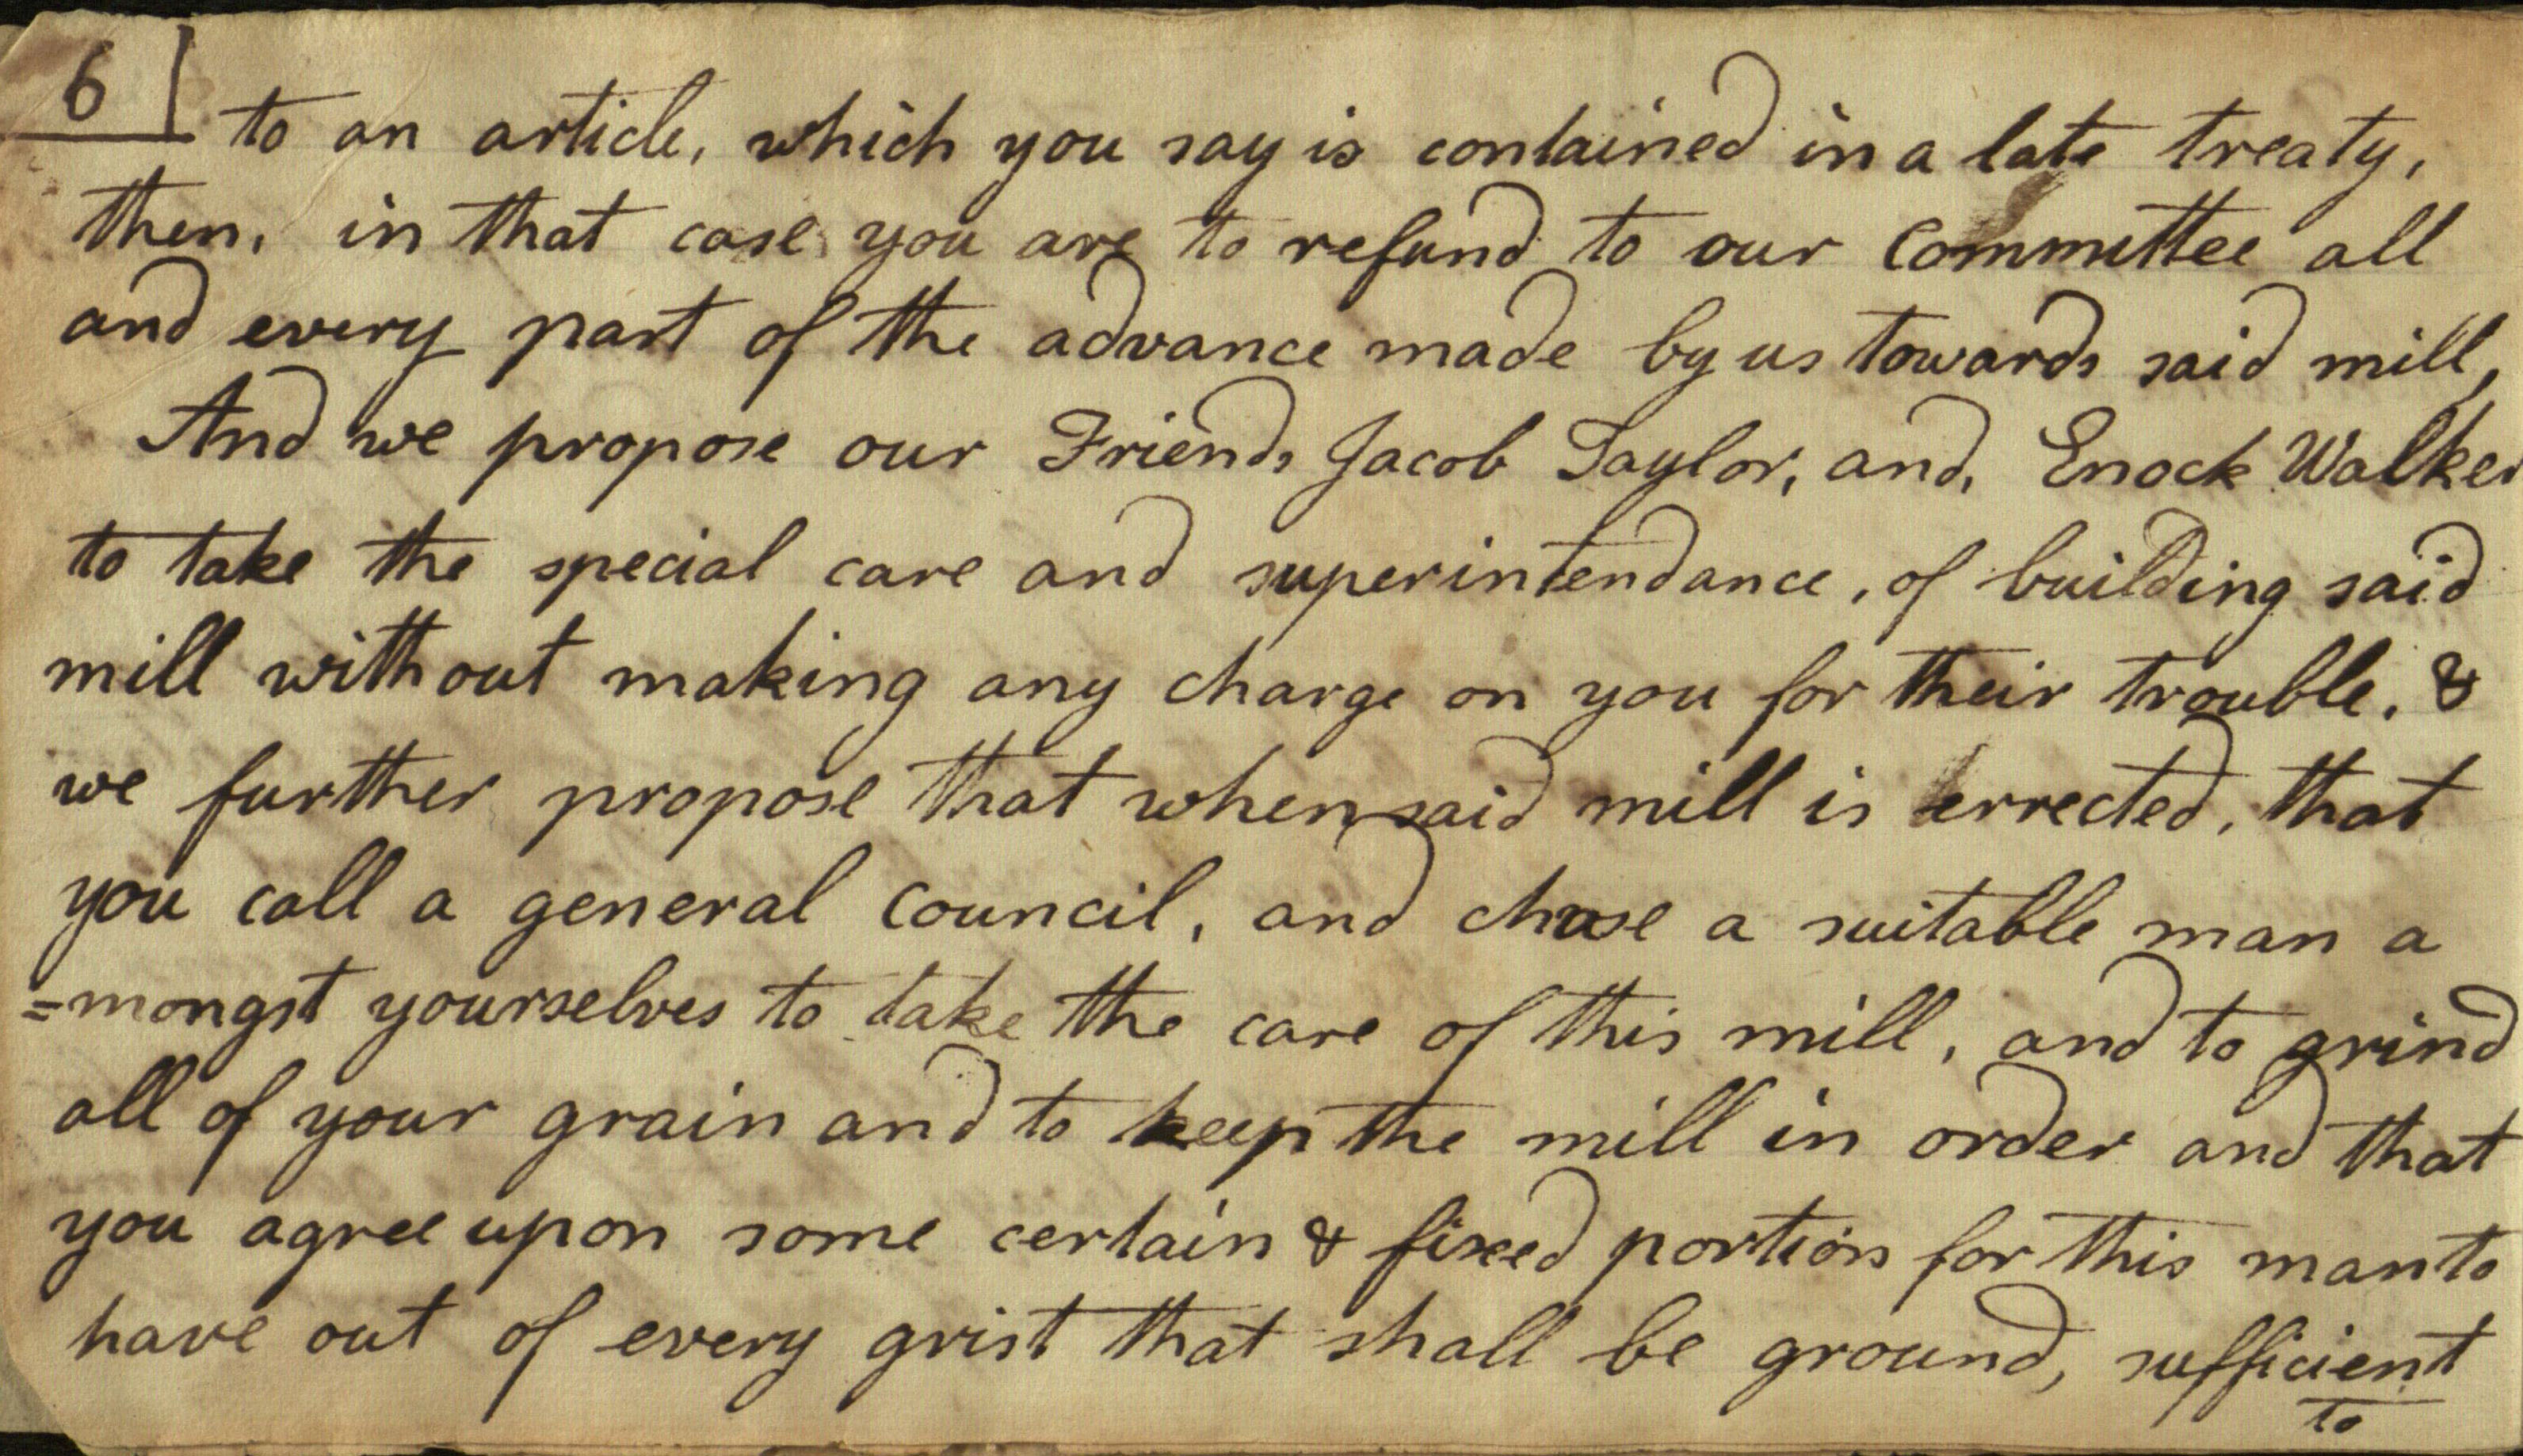 6
to an article, which you say is contained in a late treaty,
then, in that case you are to refund to our committee all
and every part of the advance made by us towards said mill,
And we propose our Friends Jacob Taylor, and, Enock Walker
to take the special care and superintendance, of building said
mill without making any charge on you for their trouble. &
we further propose that when said mill is errected, that
you call a general council, and chose a suitable man a
=mongst yourselves to take the care of this mill, and to grind
all of your grain and to keep the mill in order and that
you agree upon some certain & fixed portion for this man to
have out of every grist that shall be ground, sufficient
to